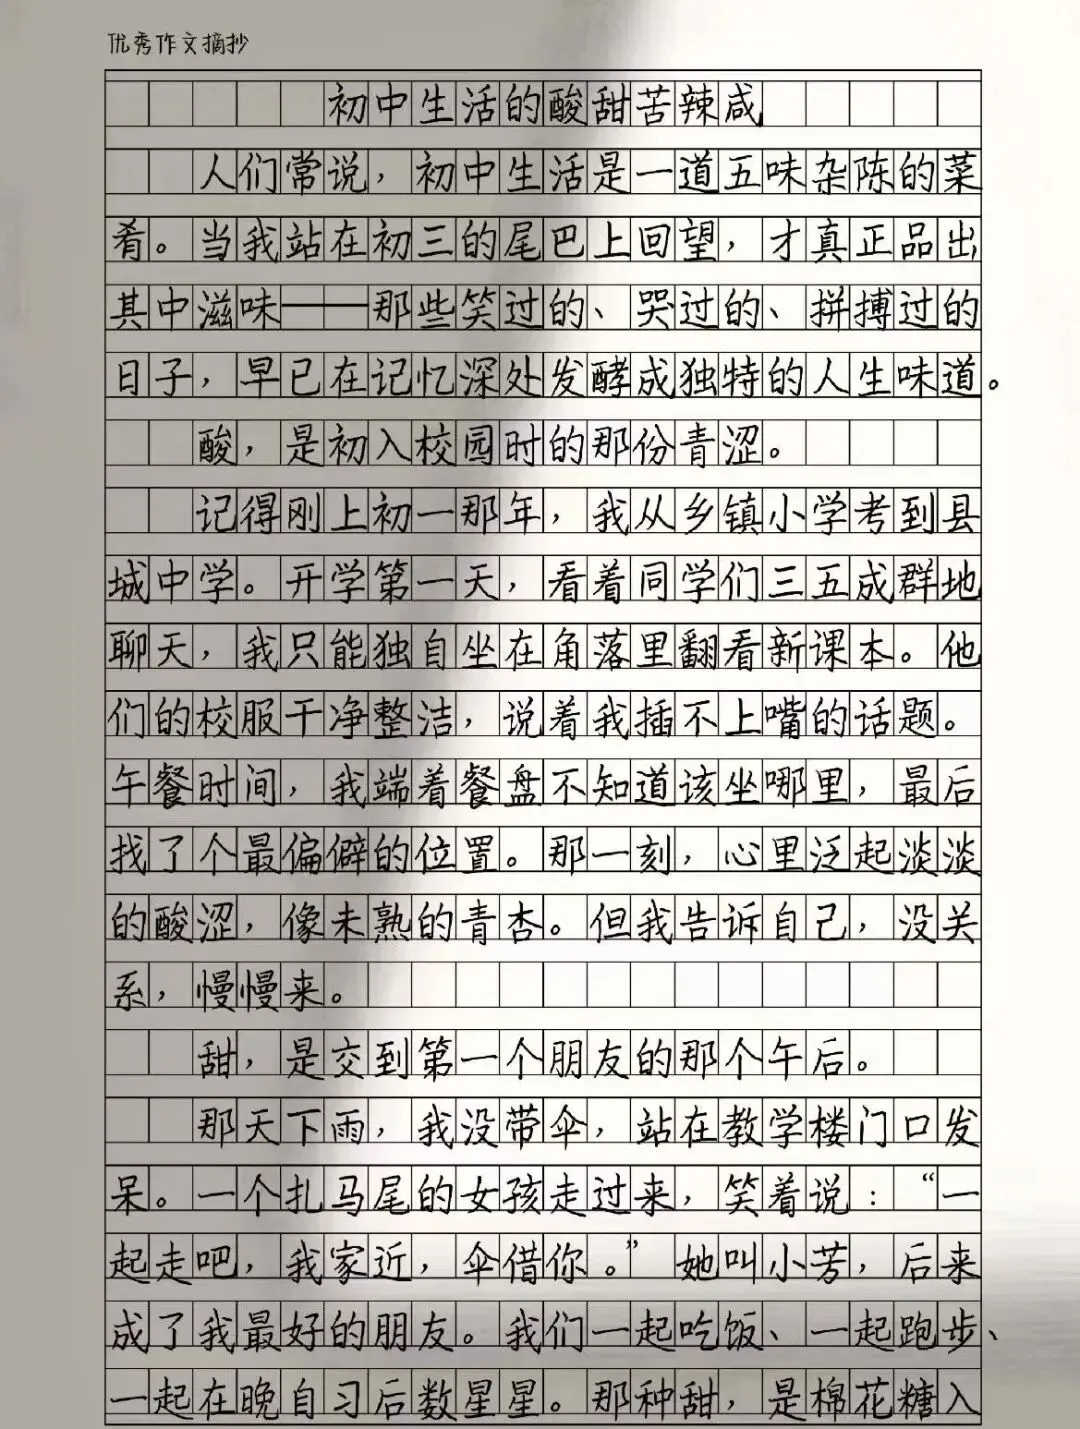 优秀作文摘抄
初中生活的酸甜苦辣咸
人们常说，初中生活是一道五味杂陈的菜
肴。当我站在初三的尾巴上回望，才真正品出
其中滋味——那些笑过的、哭过的、拼搏过的
日子，早已在记忆深处发酵成独特的人生味道。
酸，是初入校园时的那份青涩。
记得刚上初一那年，我从乡镇小学考到县
城中学。开学第一天，看着同学们三五成群地
聊天，我只能独自坐在角落里翻看新课本。他
们的校服干净整洁，说着我插不上嘴的话题。
午餐时间，我端着餐盘不知道该坐哪里，最后
找了个最偏僻的位置。那一刻，心里泛起淡淡
的酸涩，像未熟的青杏。但我告诉自己，没关
系，慢慢来。
甜，是交到第一个朋友的那个午后。
那天下雨，我没带伞，站在教学楼门口发
呆。一个扎马尾的女孩走过来，笑着说：“一
起走吧，我家近，伞借你。”她叫小芳，后来
成了我最好的朋友。我们一起吃饭、一起跑步、
一起在晚自习后数星星。那种甜，是棉花糖入